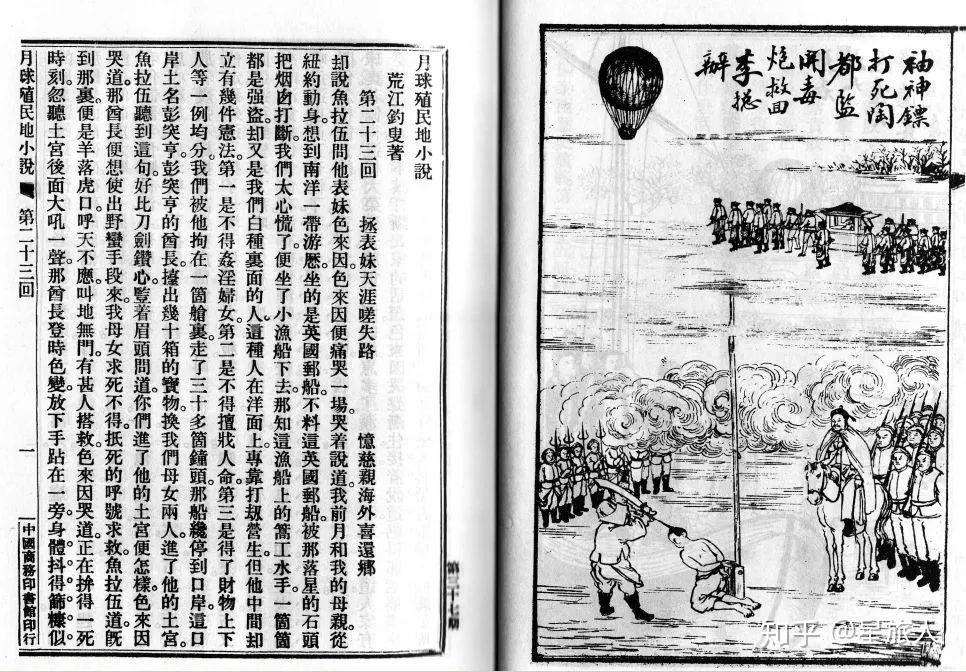 袖神鏢
打死陶
都監
開毒
炮救回
李摠
辦
月球殖民地小說
荒江釣叟著
第二十三回 拯表妹天涯嗟失路 憶慈親海外喜還鄉
却說魚拉伍問他表妹色來因。色來因便痛哭一場。哭着說道。我前月和我的母親從
紐約動身。想到南洋一帶游歷。坐的是英國郵船。不料這英國郵船被那落星的石頭
把烟囪打斷。我們太心慌了。便坐了小漁船下去。那知這漁船上的篙工水手。一箇箇
都是强盜。却又是我們白種裏面的人。這種人在洋面上。專靠打刼營生。但他中間却
立有幾件憲法。第一是不得姦淫婦女。第二是不得擅戕人命。第三是得了財物上下
人等一例均分。我們被他拘在一箇艙裏。走了三十多箇鐘頭。那船纔停到口岸。這口
岸土名彭突亨。彭突亨的酋長。擡出幾十箱的寶物。換我們母女兩人。進了他的土宮。
魚拉伍聽到這句。好比刀劍鑽心。豎着眉頭問道。你們進了他的土宮。便怎樣。色來因
哭道。那酋長便想使出野蠻手段來。我母女求死不得。抵死的呼號求救。魚拉伍道。旣
到那裏。便是羊落虎口。呼天不應。叫地無門。有甚人搭救。色來因哭道。正在拚得一死
時刻。忽聽土宮後面大吼一聲。那酋長登時色變。放下手。跕在一旁。身體抖得篩糠似
月球殖民地小說 第二十三回 一 中國商務印書館印行
知乎 @星旅人